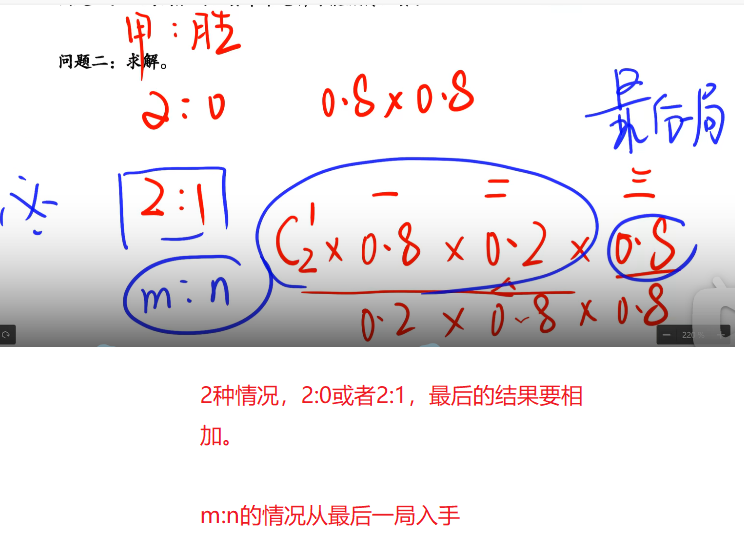 甲：胜
问题二：求解。
2:0 0.8×0.8
最后一局
※ 2:1 一 二 三
C₂¹×0.8×0.2×0.8
m:n 0.2×0.8×0.8
2种情况，2:0或者2:1，最后的结果要相
加。
m:n的情况从最后一局入手